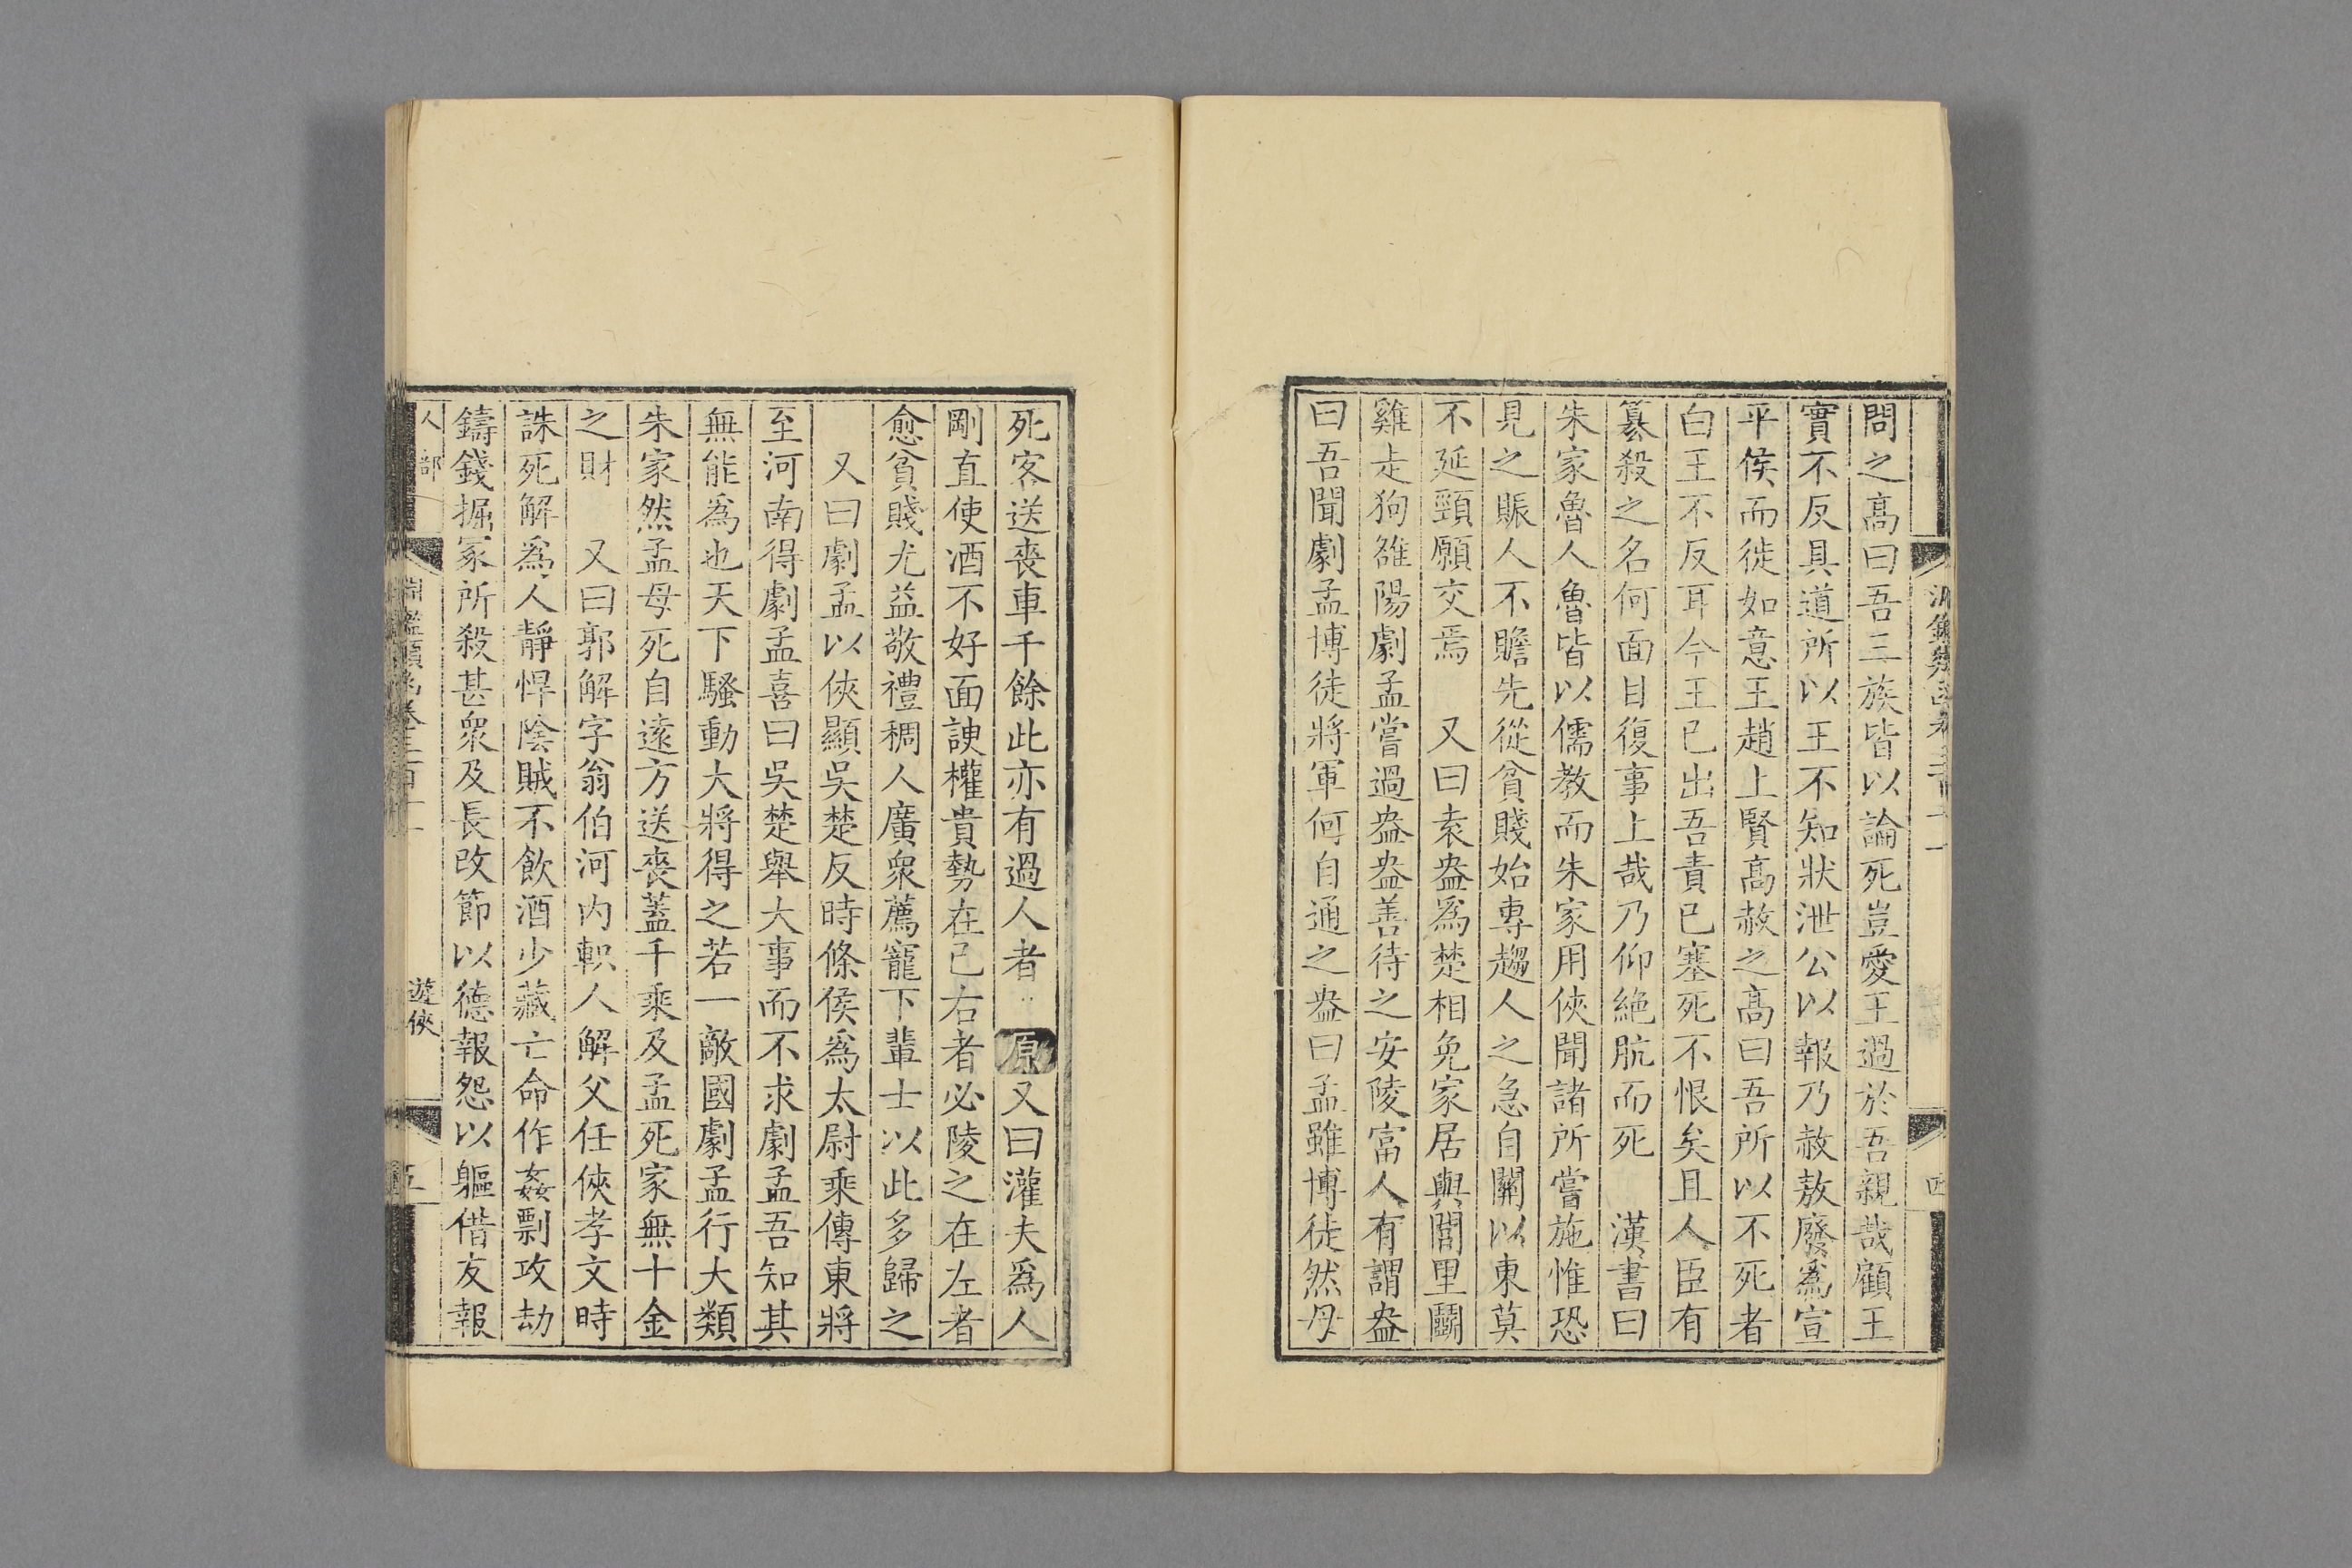 問之高曰吾三族皆以論死豈愛王過於吾親哉顧王
實不反具道所以王不知狀泄公以報乃赦敖廢爲宣
平侯而徙如意王趙上賢高赦之高曰吾所以不死者
白王不反耳今王已出吾責已塞死不恨矣且人臣有
簒殺之名何面目復事上哉乃仰絶肮而死　漢書曰
朱家魯人魯皆以儒教而朱家用俠聞諸所嘗施惟恐
見之賑人不贍先從貧賤始專趨人之急自關以東莫
不延頸願交焉　又曰袁盎爲楚相免家居與閭里鬭
雞走狗雒陽劇孟嘗過盎盎善待之安陵富人有謂盎
曰吾聞劇孟博徒將軍何自通之盎曰孟雖博徒然母
死客送喪車千餘此亦有過人者　原又曰灌夫爲人
剛直使酒不好面諛權貴勢在己右者必陵之在左者
愈貧賤尤益敬禮稠人廣衆薦寵下輩士以此多歸之
又曰劇孟以俠顯吳楚反時條侯爲太尉乘傳東將
至河南得劇孟喜曰吳楚舉大事而不求劇孟吾知其
無能爲也天下騷動大將得之若一敵國劇孟行大類
朱家然孟母死自遠方送喪蓋千乘及孟死家無十金
之財　又曰郭解字翁伯河内軹人解父任俠孝文時
誅死解爲人靜悍陰賊不飲酒少藏亡命作姦剽攻劫
鑄錢掘冢所殺甚衆及長改節以德報怨以軀借友報
人部
遊俠